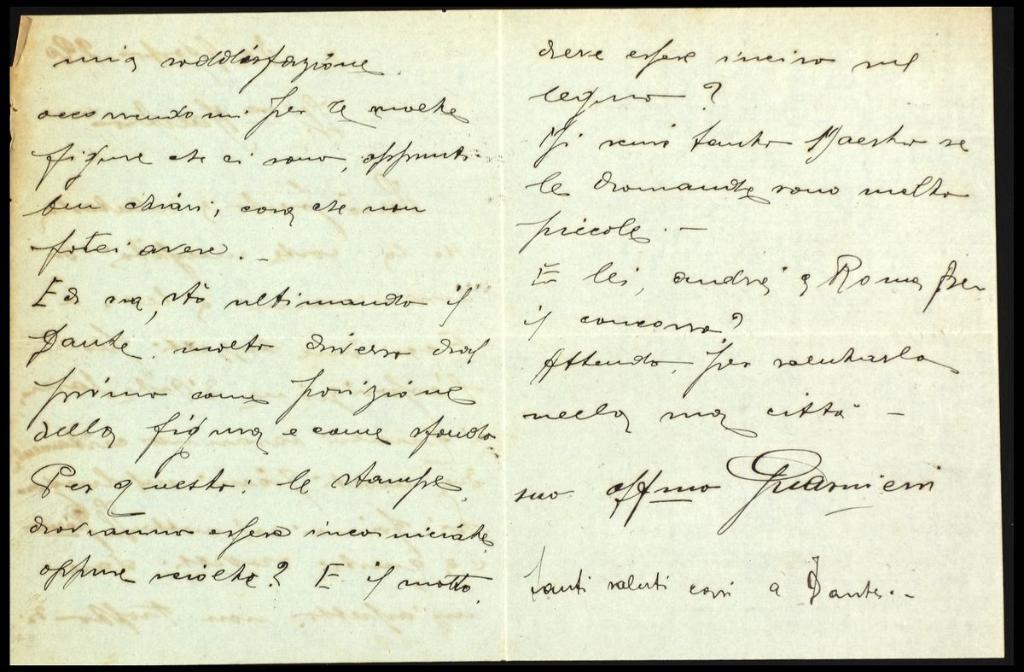 mia soddisfazione.
occorrendomi per le molte
figure che ci sono, appunti
ben chiari, cosa che non
potei avere. _
Ed ora, stò ultimando il
Dante. molto diverso dal
primo come posizione
della figura e come sfondo.
Per questo: le stampe,
dovranno essere incorniciate
oppure sciolte? E il motto,
deve essere inciso sul
legno?
Mi scusi tanto Maestro se
le domande sono molto
piccole. —
E lei, andrà a Roma per
il concorso?
Attendo, per salutarla
nella mia città —
suo aff mo Guarnieri
Tanti saluti cari a Dante. —